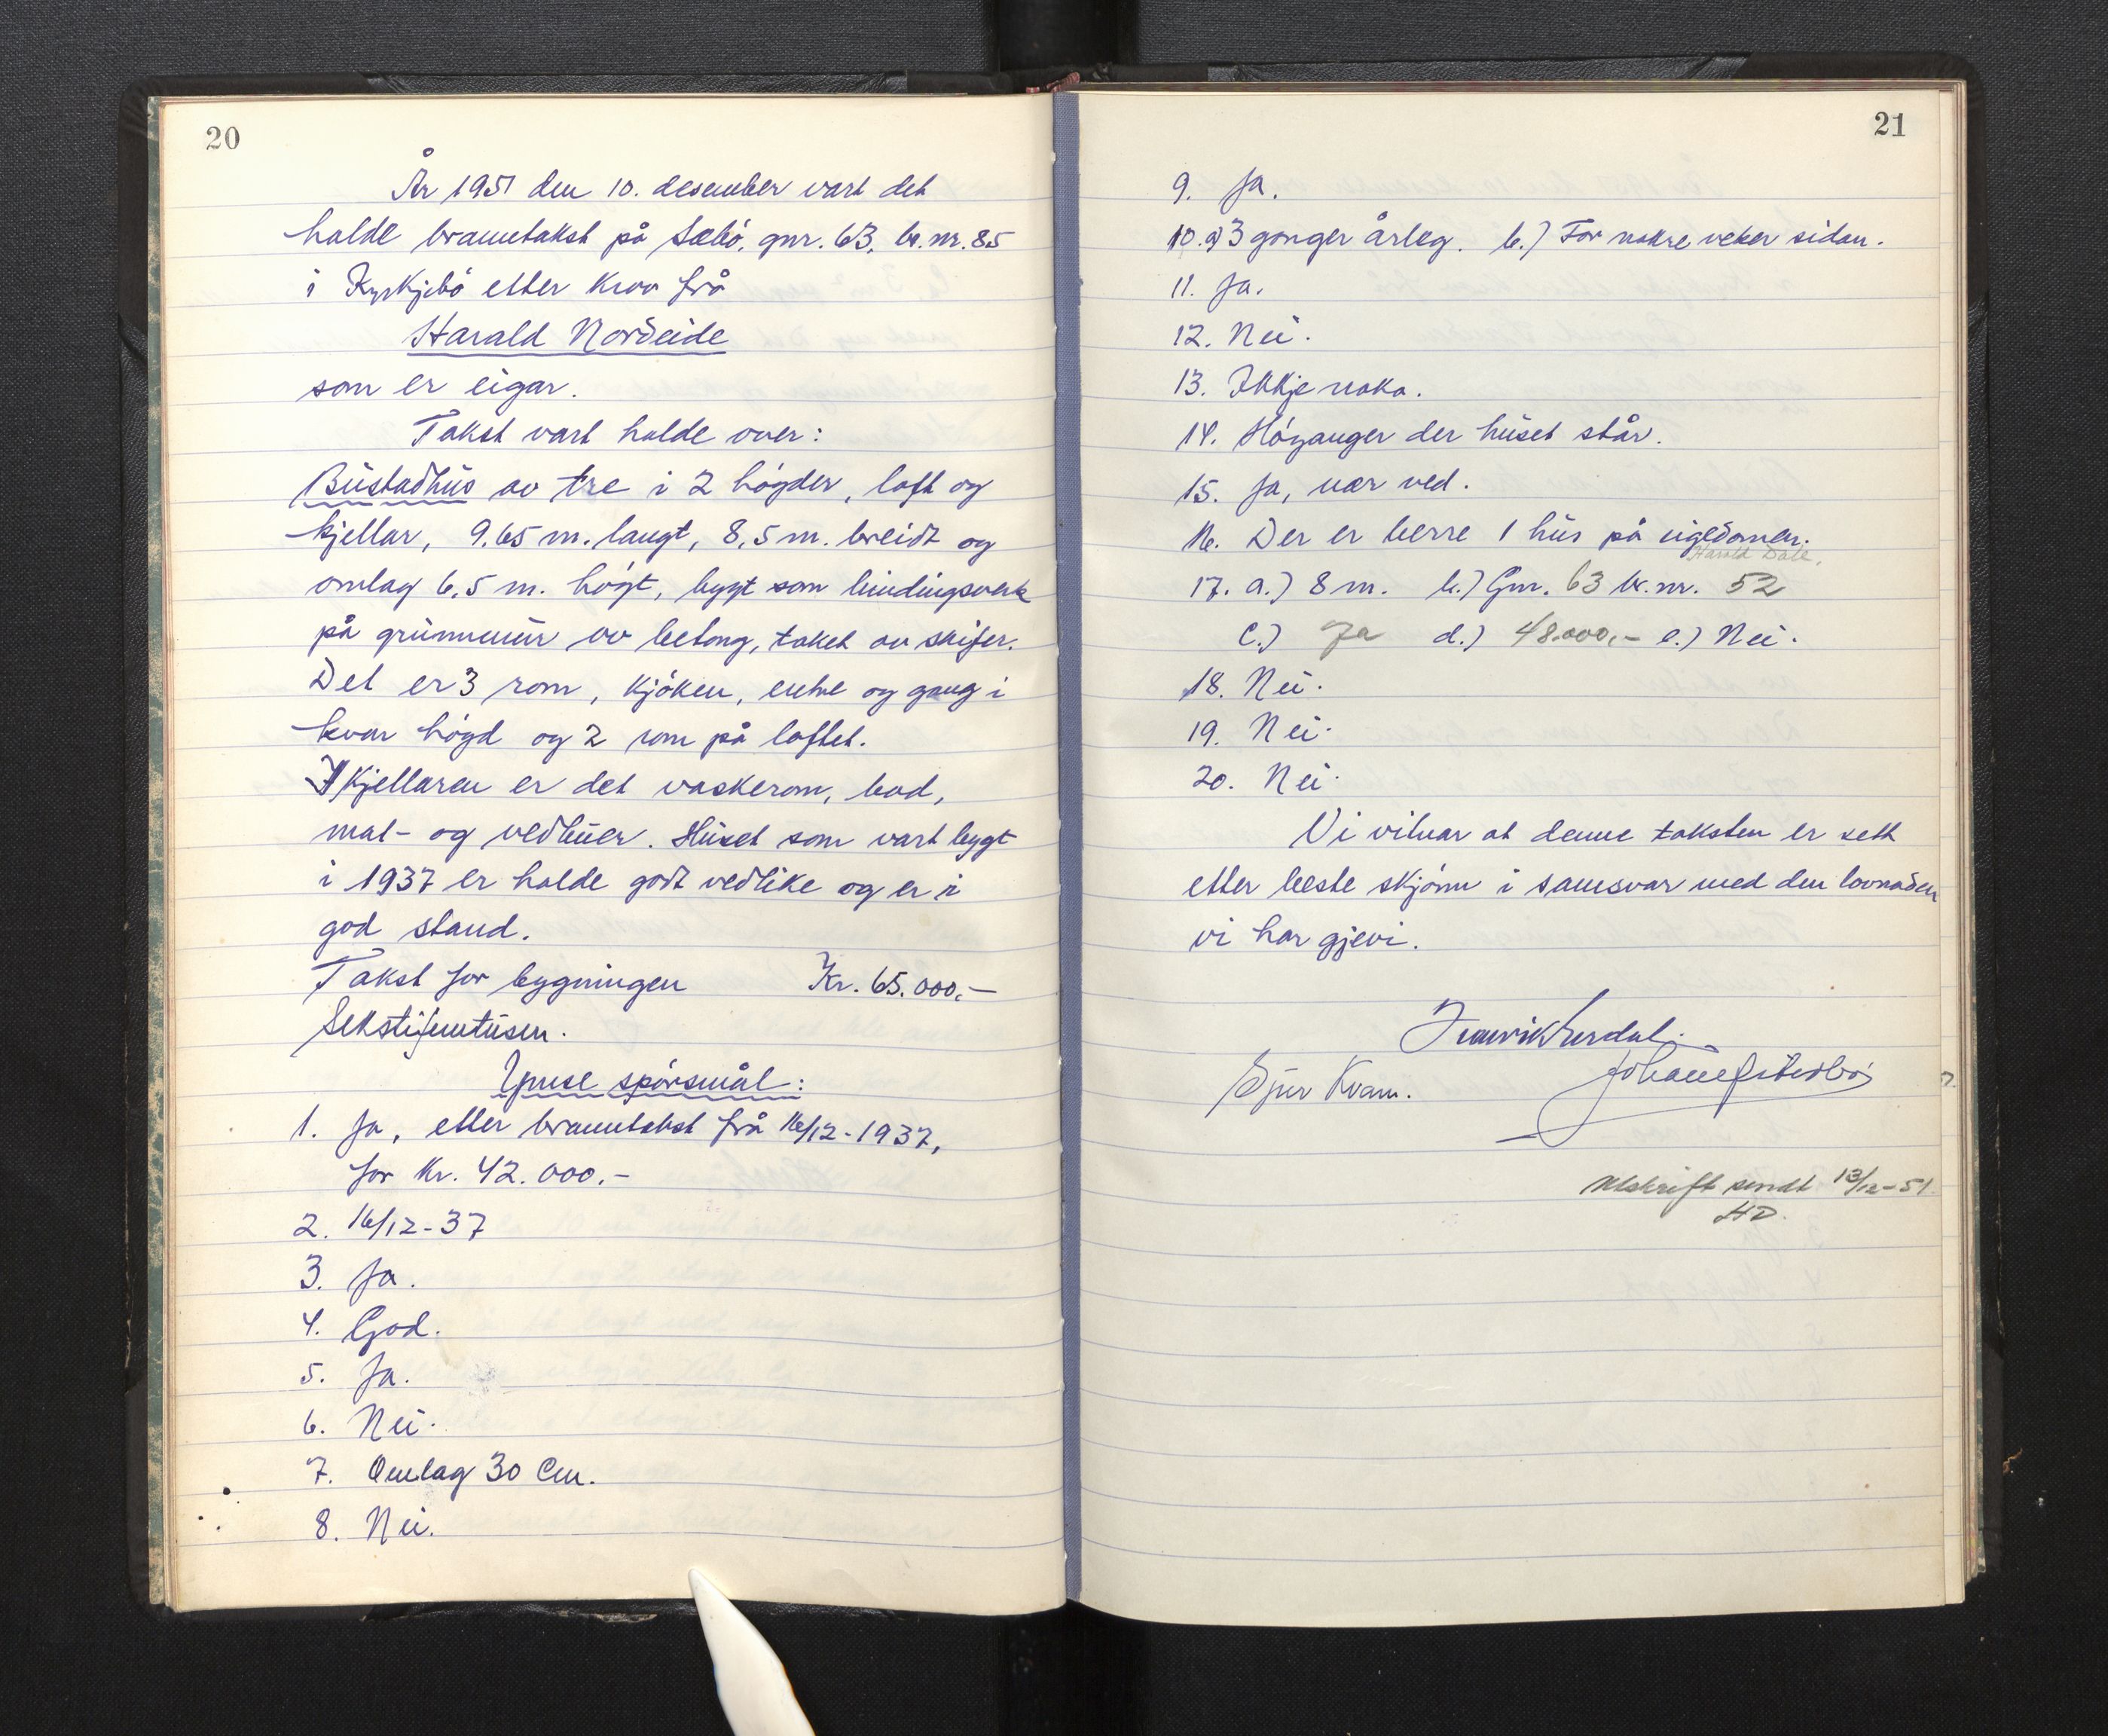 20
År 1951 den 10. desember vart det
halde branntakst på Sæbö, gnr. 63, br.nr. 85
i Kyrkjebö etter krav frå
Harald Nordeide
som er eigar.
Takst vart halde over:
Bustadhus av tre i 2 högder, loft og
kjellar, 9.65 m. langt, 8,5 m. breidt og
omlag 6,5 m. högt, bygt som bindingsverk
på grunnmur av betong, taket av skifer.
Det er 3 rom, kjöken, entre og gang i
kvar högd og 2 rom på loftet.
I kjellaren er det vaskerom, bad,
mat- og vedbuer. Huset som vart bygt
i 1937 er halde godt vedlike og er i
god stand.
Takst for bygningen Kr. 65.000,-
Sekstifemtusen.
Ymse spörsmål:
1. Ja, etter branntakst frå 16/12-1937,
for kr. 42.000.-
2. 16/12-37
3. Ja.
4. God.
5. Ja.
6. Nei.
7. Omlag 30 Cm.
8. Nei.
21
9. Ja.
10.a) 3 gonger årleg. b.) For nokre veker sidan.
11. Ja.
12. Nei.
13. Ikkje noko.
14. Höyanger der huset står.
15. Ja, nær ved.
16. Der er berre 1 hus på eigedomen.
Harald Dale,
17. a.) 8 m. b.) Gnr. 63 br.nr. 52
c.) Ja d.) 48.000,- e.) Nei.
18. Nei.
19. Nei.
20. Nei.
Vi vitnar at denne taksten er sett
etter beste skjönn i samsvar med den lovnaden
vi har gjevi.
Kvam.
Utskrift sendt 13/12-51.
HD.